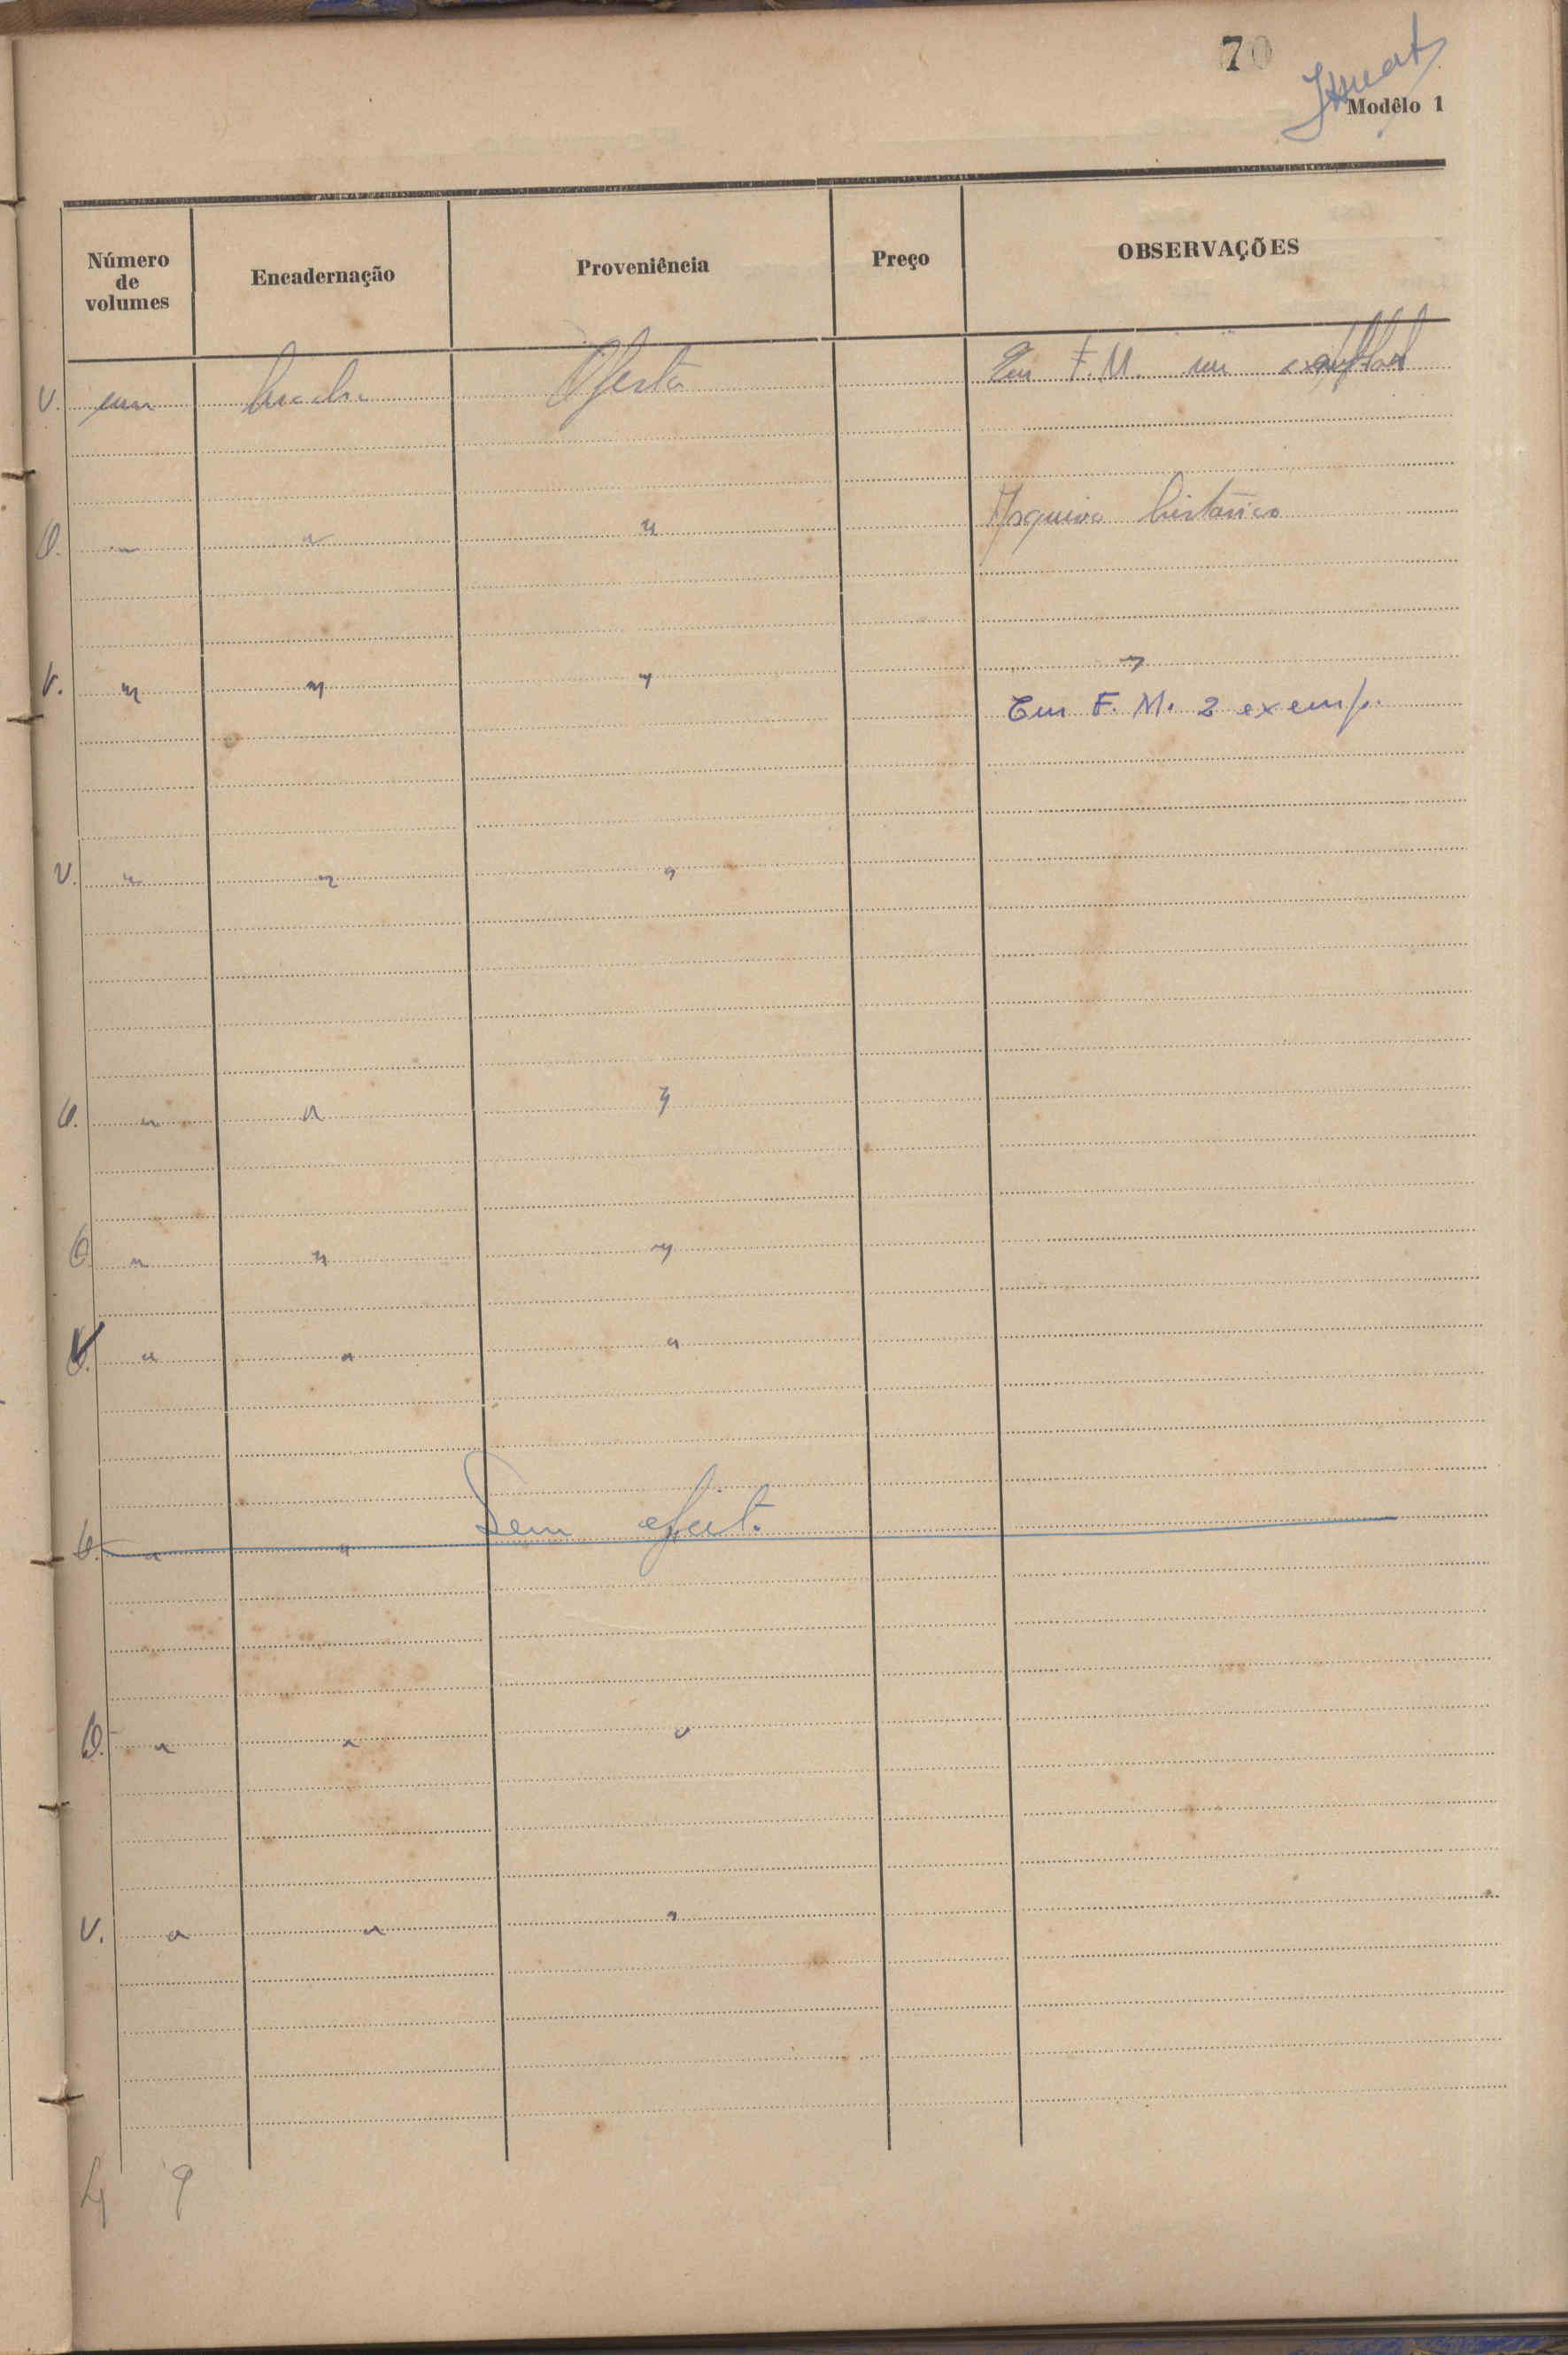 70
Modêlo 1
Número de volumes Encadernação Proveniência Preço OBSERVAÇÕES
V. um Oferta Em F.M. um exemplar
O. " " " Arquivo histórico
V. " " " "
Em F. M. 2 exemp.
V. " " "
O. " " "
O " " "
V. " " "
Sem efeito
O. " "
O. " " "
V. " " "
4 9